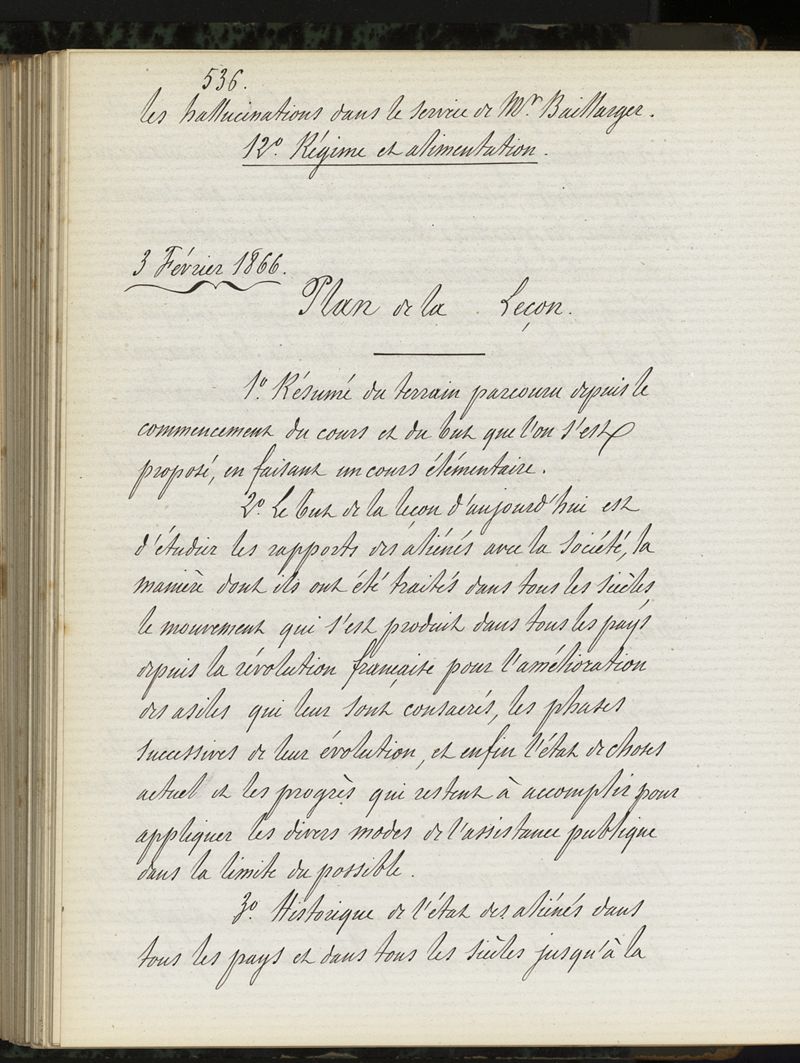 536.
les hallucinations dans le service de Mr. Baillarger.
12º. Régime et alimentation.
3 Février 1866.
Plan de la Leçon.
1º. Résumé du terrain parcouru depuis le
commencement du cours et du but que l'on s'est
proposé, en faisant un cours élémentaire.
2º. Le but de la leçon d'aujourd'hui est
d'étudier les rapports des aliénés avec la société, la
manière dont ils ont été traités dans tous les siècles,
le mouvement qui s'est produit dans tous les pays
depuis la révolution française pour l'amélioration
des asiles qui leur sont consacrés, les phases
successives de leur évolution, et enfin l'état de choses
actuel et les progrès qui restent à accomplir pour
appliquer les divers modes de l'assistance publique
dans la limite du possible.
3º. Historique de l'état des aliénés dans
tous les pays et dans tous les siècles jusqu'à la